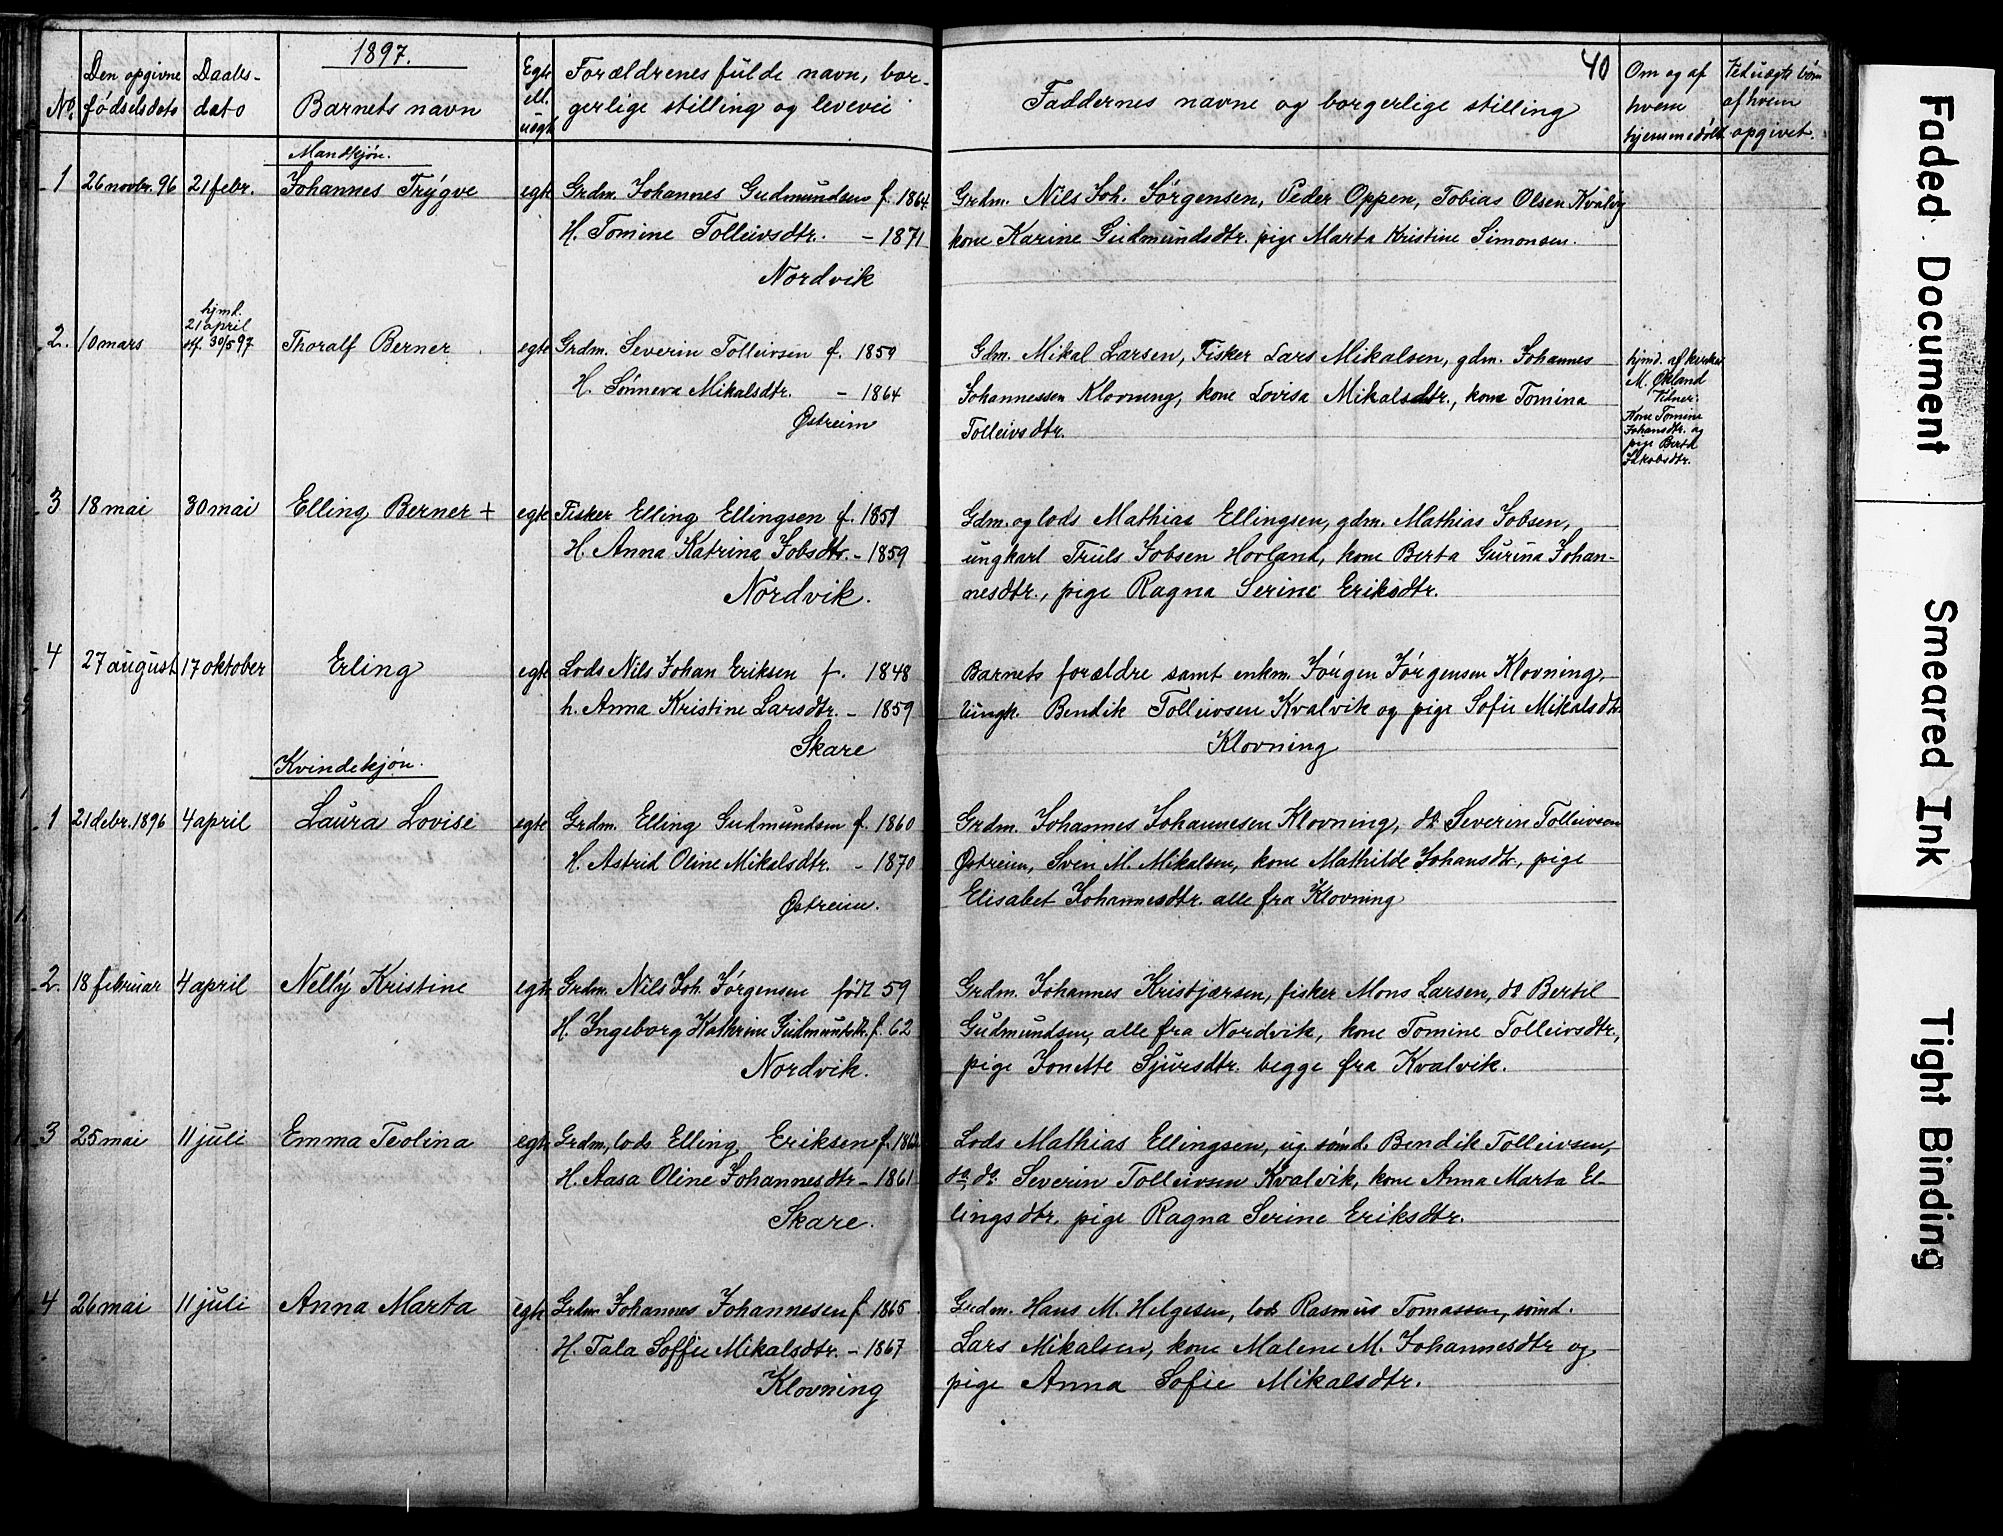 1897.
40
No. Den opgivne fødselsdato Daabs-dato Barnets navn Egte ell. uegte Forældrenes fulde navn, borgerlige stilling og levevei Faddernes navne og borgerlige stilling Om og af hvem hjemmedøbt Ved uegte børn af hvem opgivet.
Mandkjøn.
1 26 novbr. 96 21 febr. Johannes Trygve egte Grdm. Johannes Gudmundsen f. 1864.
H. Tomine Tolleivsdtr. – 1871
Nordvik
Grdm. Nils Joh. Jørgensen, Peder Oppen, Tobias Olsen Kvalvig
kone Karine Gudmundsdtr. pige Marta Kristine Simonsen.
hjmd.
21 april
stf. 30/5 97
2. 10 mars Thoralf Berner egte Grdm. Severin Tolleivsen f. 1859
H. Sønneva Mikalsdtr. – 1864
Østreim
Gdm. Mikal Larsen, Fisker Lars Mikalsen, gdm. Johannes
Johannessen Klovning, kone Lovisa Mikalsdtr., kone Tomina
Tolleivsdtr.
hjmd. af kirkes.
M. Økland
Vidner:
Kone Tomine
Johansdtr. og
pige Berta
Jakobsdtr.
3 18 mai 30 mai Elling Berner + egte Fisker Elling Ellingsen f. 1851
H. Anna Katrina Jobsdtr. – 1859
Nordvik.
Gdm. og lods Mathias Ellingsen, gdm. Mathias Jobsen,
ungkarl Truls Jobsen Hovland, kone Berta Gurina Johan-
nesdtr., pige Ragna Serine Eriksdtr.
4 27 august 17 oktober Erling egte Lods Nils Johan Eriksen f. 1848
h. Anna Kristine Larsdtr. – 1859
Skare
Barnets forældre samt enkm. Jørgen Jørgensen Klovning,
Ungk. Bendik Tolleivsen Kvalvik og pige Sofie Mikalsdtr.
Klovning
Kvindekjøn.
1 21 debr. 1896 4 april Laura Lovise egte Grdm. Elling Gudmundsen f. 1860
H. Astrid Oline Mikalsdtr. – 1870
Østreim.
Grdm. Johannes Johannesen Klovning, do Severin Tolleivsen
Østreim, Sven M. Mikalsen, kone Mathilde Johansdtr, pige
Elisabet Johannesdtr. alle fra Klovning
2. 18 februar 4 april Nelly Kristine egte Grdm. Nils Joh. Jørgensen født 59
H. Ingeborg Kathrine Gudmundsdtr. f. 62
Nordvik.
Grdm. Johannes Kristjærsen, fisker Mons Larsen, do Bertil
Gudmundsen, alle fra Nordvik, kone Tomine Tolleivsdtr,
pige Jonette Sjursdtr. begge fra Kvalvik.
3 25 mai 11 juli Emma Teolina egte Grdm, lods Elling Eriksen f.
H. Aasa Oline Johannesdtr – 1861
Skare.
Lods Mathias Ellingsen, ug. sømd. Bendik Tolleivsen,
do, do. Severin Tolleivsen Kvalvik, kone Anna Marta El-
lingsdtr. pige Ragna Serine Eriksdtr.
4 26 mai 11 juli Anna Marta egte Grdm Johannes Johannesen f 1865
H. Tala Soffie Mikalsdtr. – 1867
Klovning
Grdm. Hans M. Helgesen, lods Rasmus Tomassen, sømd.
Lars Mikalsen, kone Malene M. Johannesdtr og
pige Anna Sofie Mikalsdtr.
Faded Document
Smeared Ink
Tight Binding